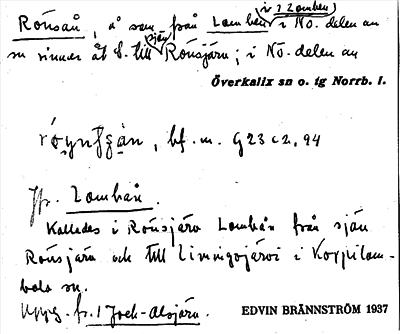 i 2 Lomben)
Rönsån, å som från Lombån i NO. delen av
sn rinner åt S. till sjön Rönsjärv; i NO-delen av
Överkalix sn o. tg Norrb. l.
bf. m. G 23 c 2, 94
Jfr. Lombån.
Kallades i Rönsjärv Lombån från sjön
Rönsjärv och till Linnigojärvi i Korpilom-
bolo sn.
Uppg. fr. 1 Jock-Alsjärv.
EDVIN BRÄNNSTRÖM 1937